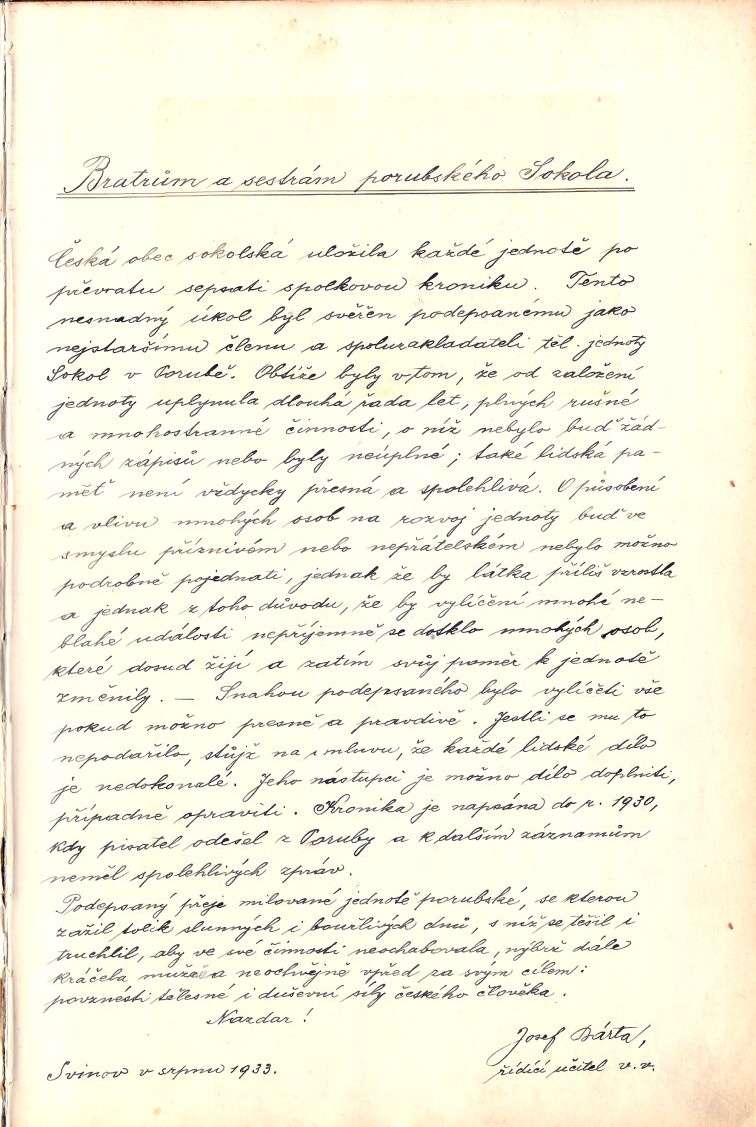 Bratrům a sestrám porubského Sokola.
Česká obec sokolská uložila každé jednotě po
převratu sepsati spolkovou kroniku. Tento
nesnadný úkol byl svěřen podepsanému jako
nejstaršímu členu a spoluzakladateli těl. jednoty
Sokol v Porubě. Obtíže byly v tom, že od založení
jednoty uplynula dlouhá řada let, plných rušné
a mnohostranné činnosti, o níž nebylo buď žád-
ných zápisů nebo byly neúplné; také lidská pa-
měť není vždycky přesná a spolehlivá. O působení
a vlivu mnohých osob na rozvoj jednoty buď ve
smyslu příznivém nebo nepřátelském nebylo možno
podrobně pojednati, jednak že by látka příliš vzrostla
a jednak z toho důvodu, že by vylíčení mnohé ne-
blahé události nepříjemně se dotklo mnohých osob,
které dosud žijí a zatím svůj poměr k jednotě
změnily. — Snahou podepsaného bylo vylíčeti vše
pokud možno presně a pravdivě. Jestli se mu to
nepodařilo, stůjž na omluvu, že každé lidské dílo
je nedokonalé. Jeho nástupci je možno dílo doplniti,
případně opraviti. Kronika je napsána do r. 1930,
kdy pisatel odešel z Poruby a k dalším záznamům
neměl spolehlivých zpráv.
Podepsaný přeje milované jednotě porubské, se kterou
zažil tolik slunných i bouřlivých dnů, s níž se těšil i
truchlil, aby ve své činnosti neochabovala, nýbrž dále
kráčela mužně a neochvějně vpřed za svým cílem:
povznésti tělesné i duševní síly českého člověka.
Nazdar!
Josef Bárta,
Svinov v srpnu 1933. řídící učitel v. v.